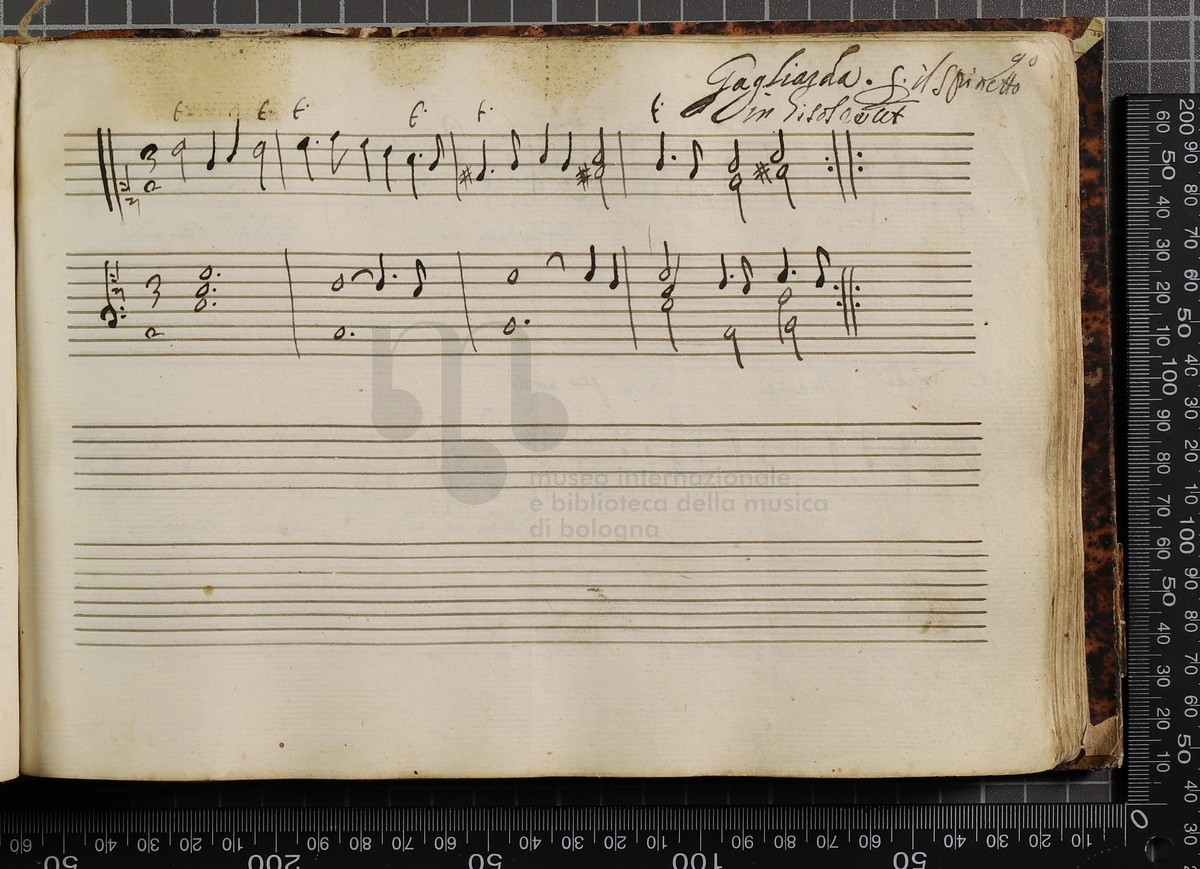 90
Gagliarda. p. il Spinetto
in Gisolreut
t. t. t. t. t. t.
museo internazionale
e biblioteca della musica
di bologna